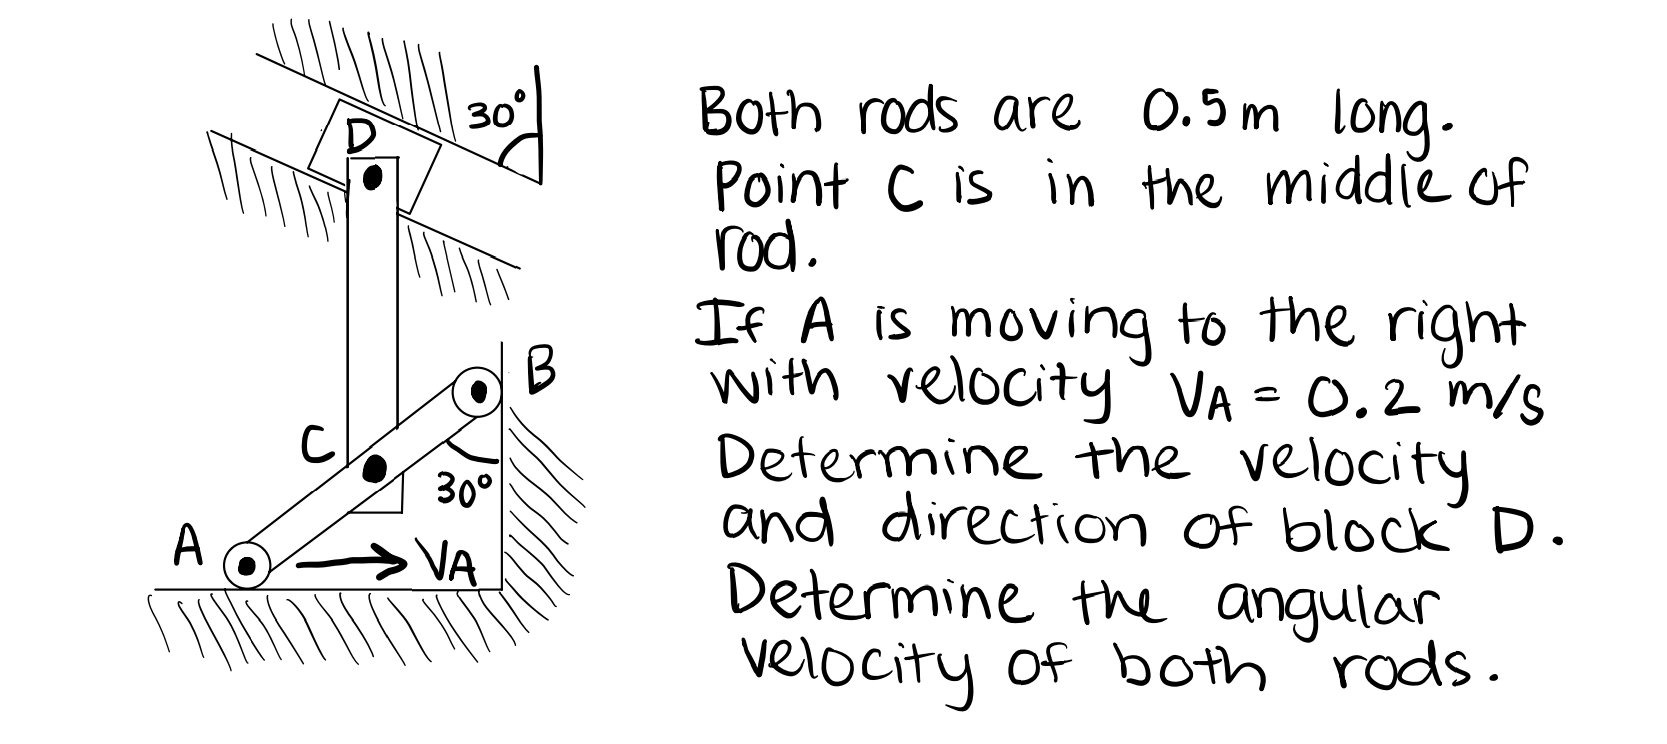 30°
D
B
C
30°
A
VA
Both rods are 0.5m long.
Point C is in the middle of
rod.
If A is moving to the right
with velocity VA = 0.2 m/s
Determine the velocity
and direction of block D.
Determine the angular
velocity of both rods.